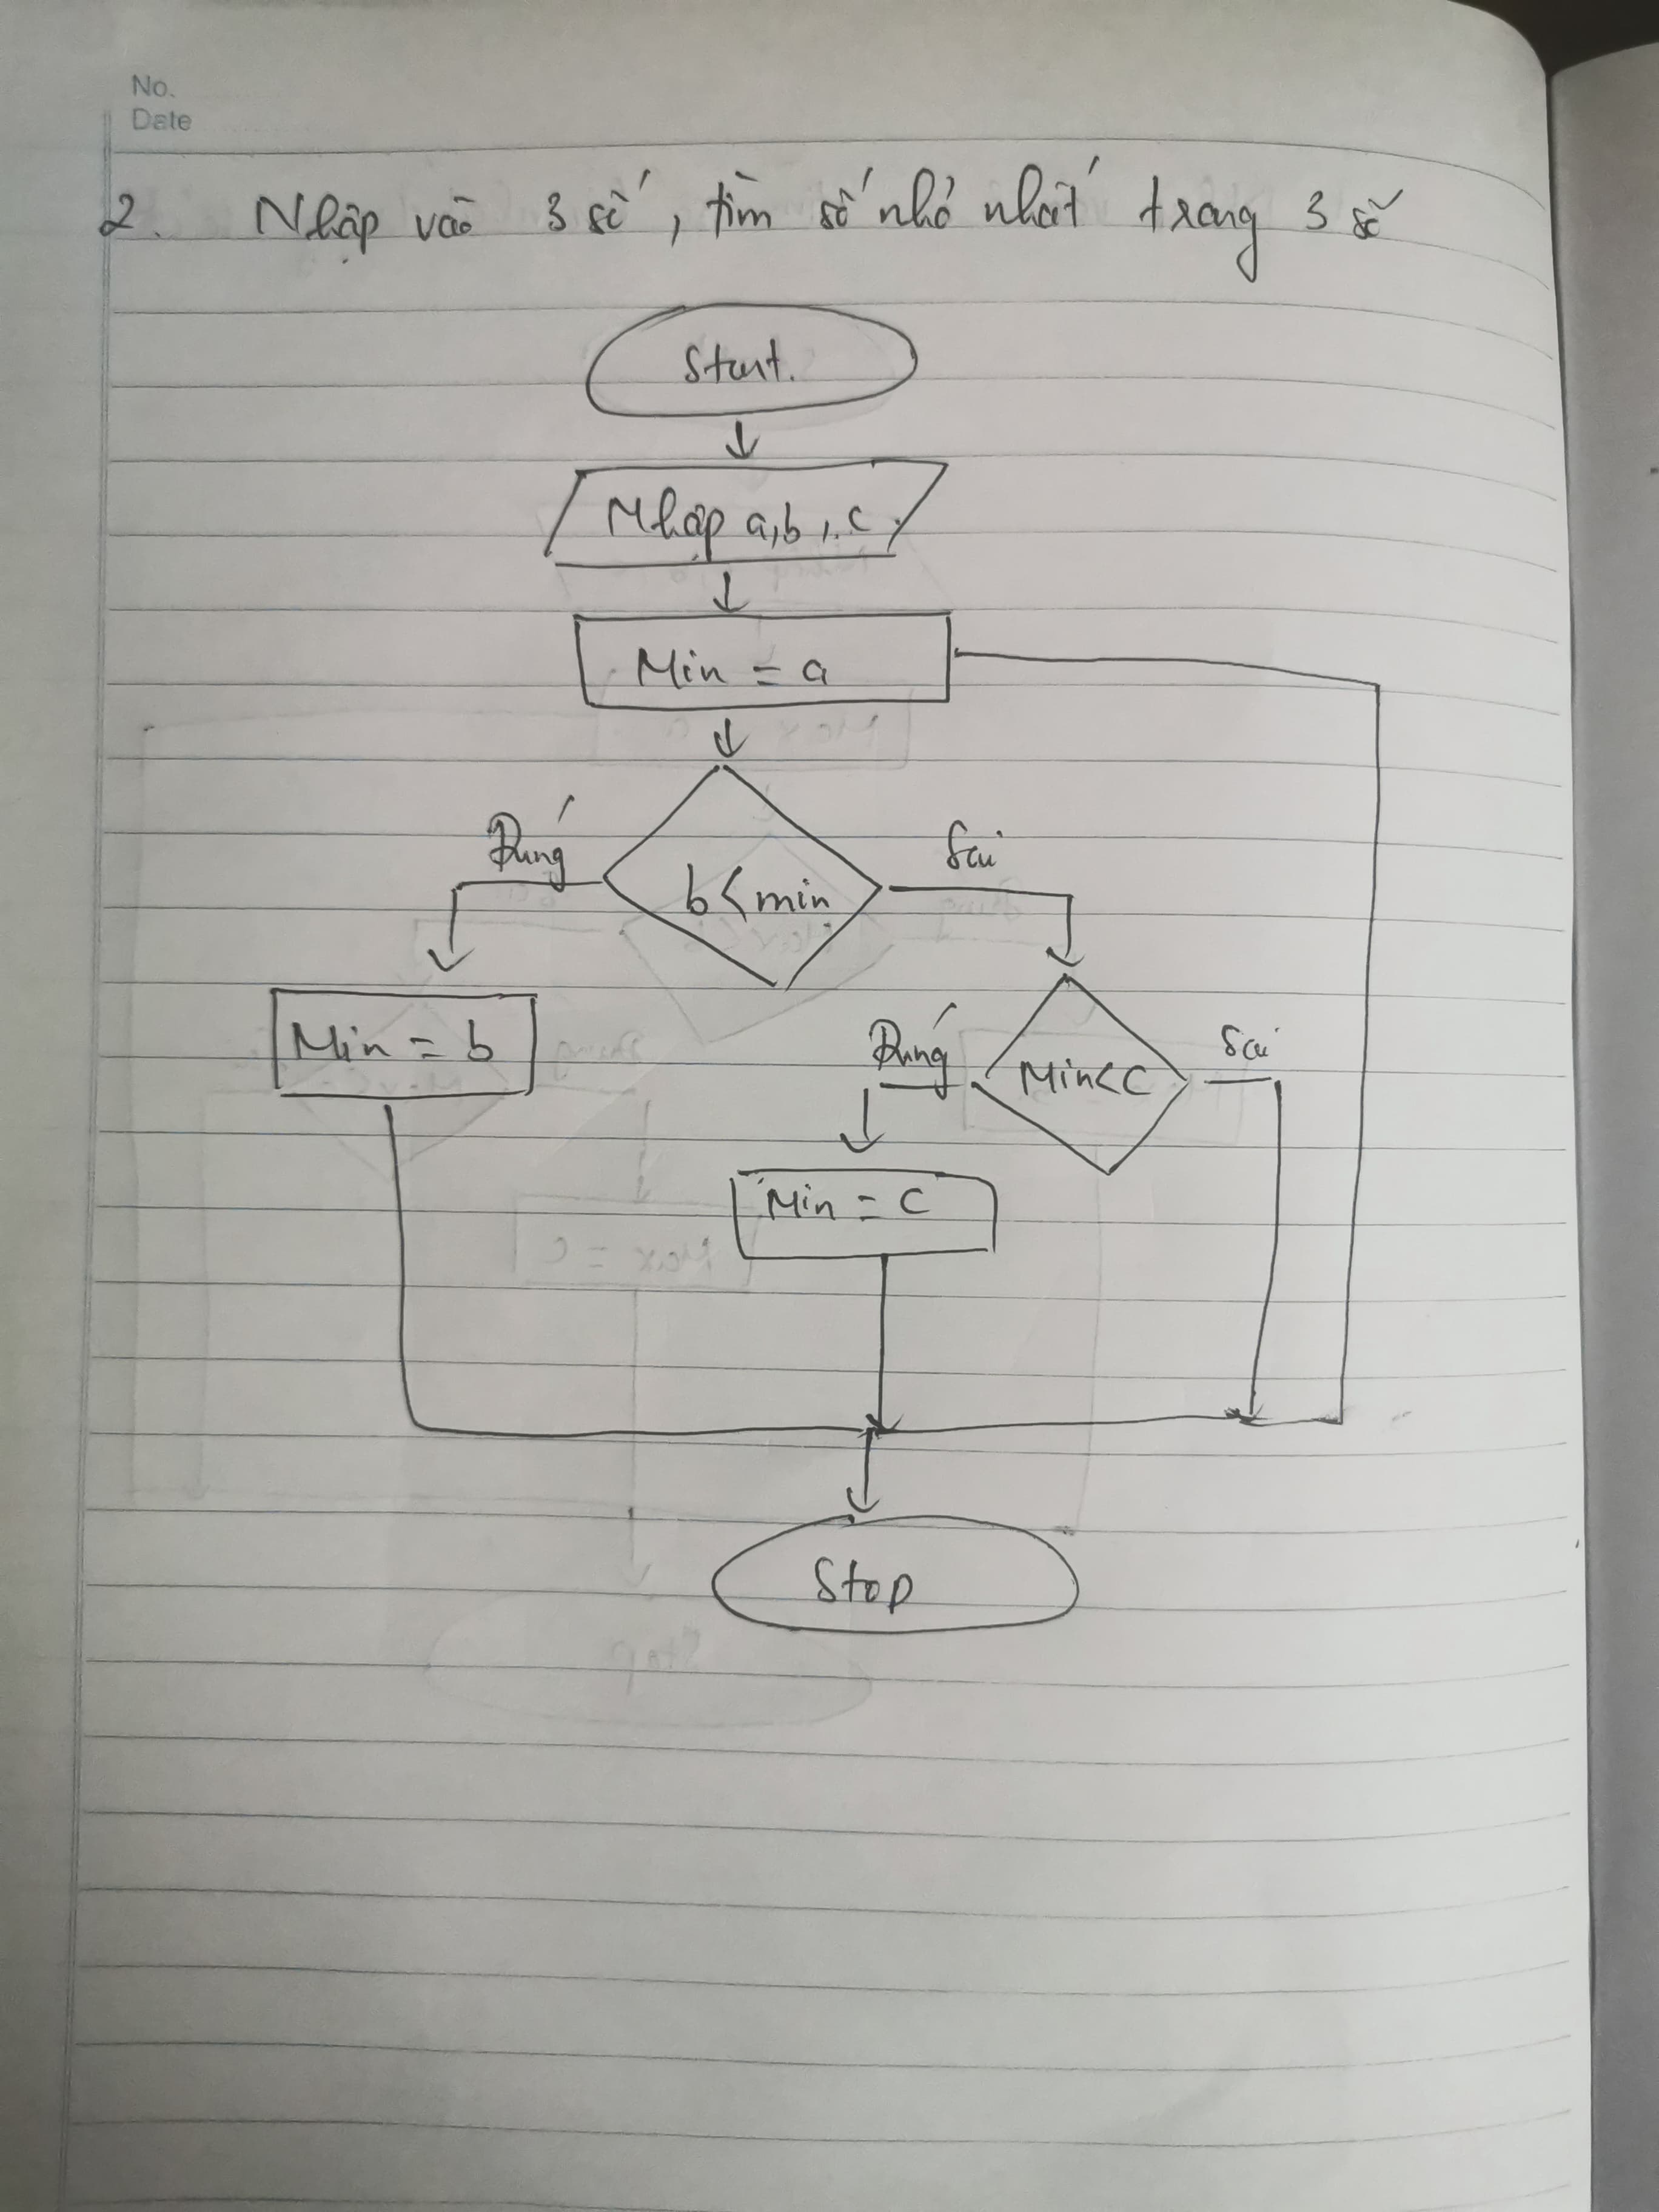 No.
Date
2. Nhập vào 3 số, tìm số nhỏ nhất trong 3 số
Start.
Nhập a,b,c.
Min = a
Đúng
b<min
Sai
Min = b
Đúng
Min<C
Sai
Min = C
Stop